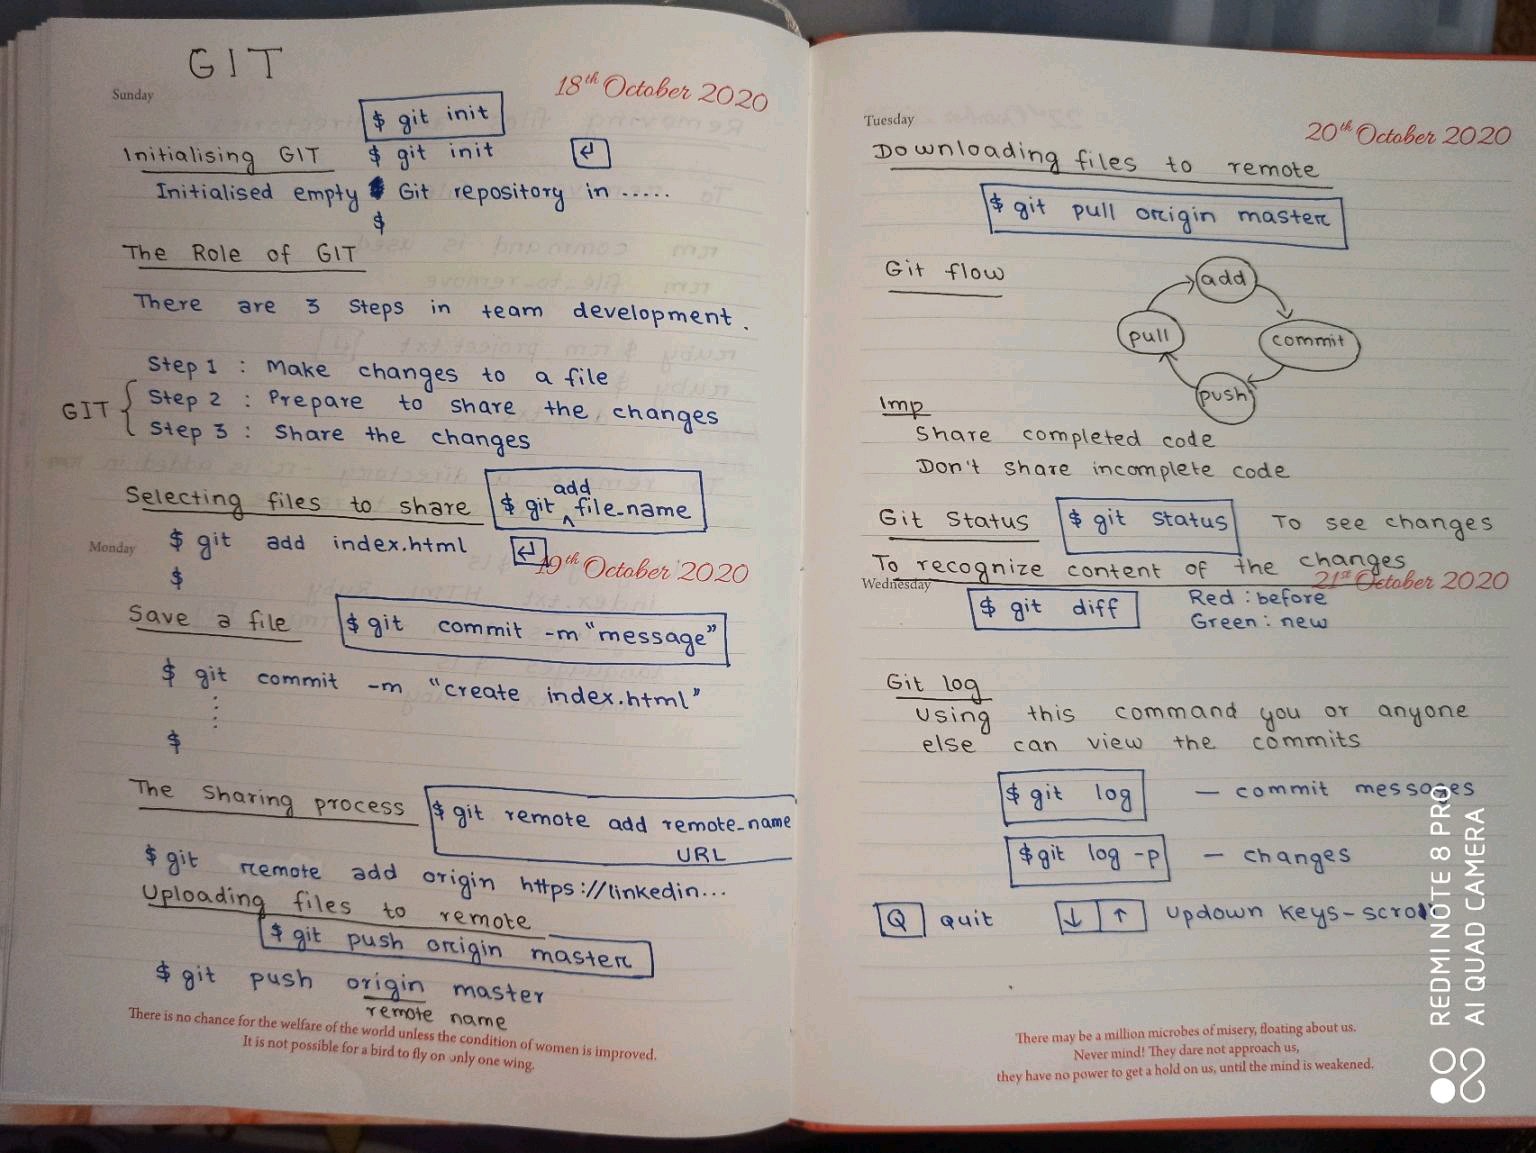 GIT
Sunday
18th October 2020
$ git init
Initialising GIT $ git init ↵
Initialised empty Git repository in .....
$
The Role of GIT
There are 3 steps in team development.
Step 1 : Make changes to a file
GIT { Step 2 : Prepare to share the changes
Step 3 : Share the changes
Selecting files to share $ git add file_name
$ git add index.html ↵
Monday
19th October 2020
$
Save a file $ git commit -m "message"
$ git commit -m "create index.html"
$
The sharing process $ git remote add remote_name
URL
$ git remote add origin https://linkedin...
Uploading files to remote
$ git push origin master
$ git push origin master
remote name
There is no chance for the welfare of the world unless the condition of women is improved.
It is not possible for a bird to fly on only one wing.
Tuesday
20th October 2020
Downloading files to remote
$ git pull origin master
Git flow
add
pull
commit
push
Imp
Share completed code
Don't share incomplete code
Git Status $ git status To see changes
To recognize content of the changes
Wednesday
21st October 2020
$ git diff Red : before
Green : new
Git log
Using this command you or anyone
else can view the commits
$ git log — commit messages
$ git log -p — changes
Q quit ↓ ↑ updown keys-scroll
There may be a million microbes of misery, floating about us.
Never mind! They dare not approach us,
they have no power to get a hold on us, until the mind is weakened.
REDMI NOTE 8 PRO
AI QUAD CAMERA